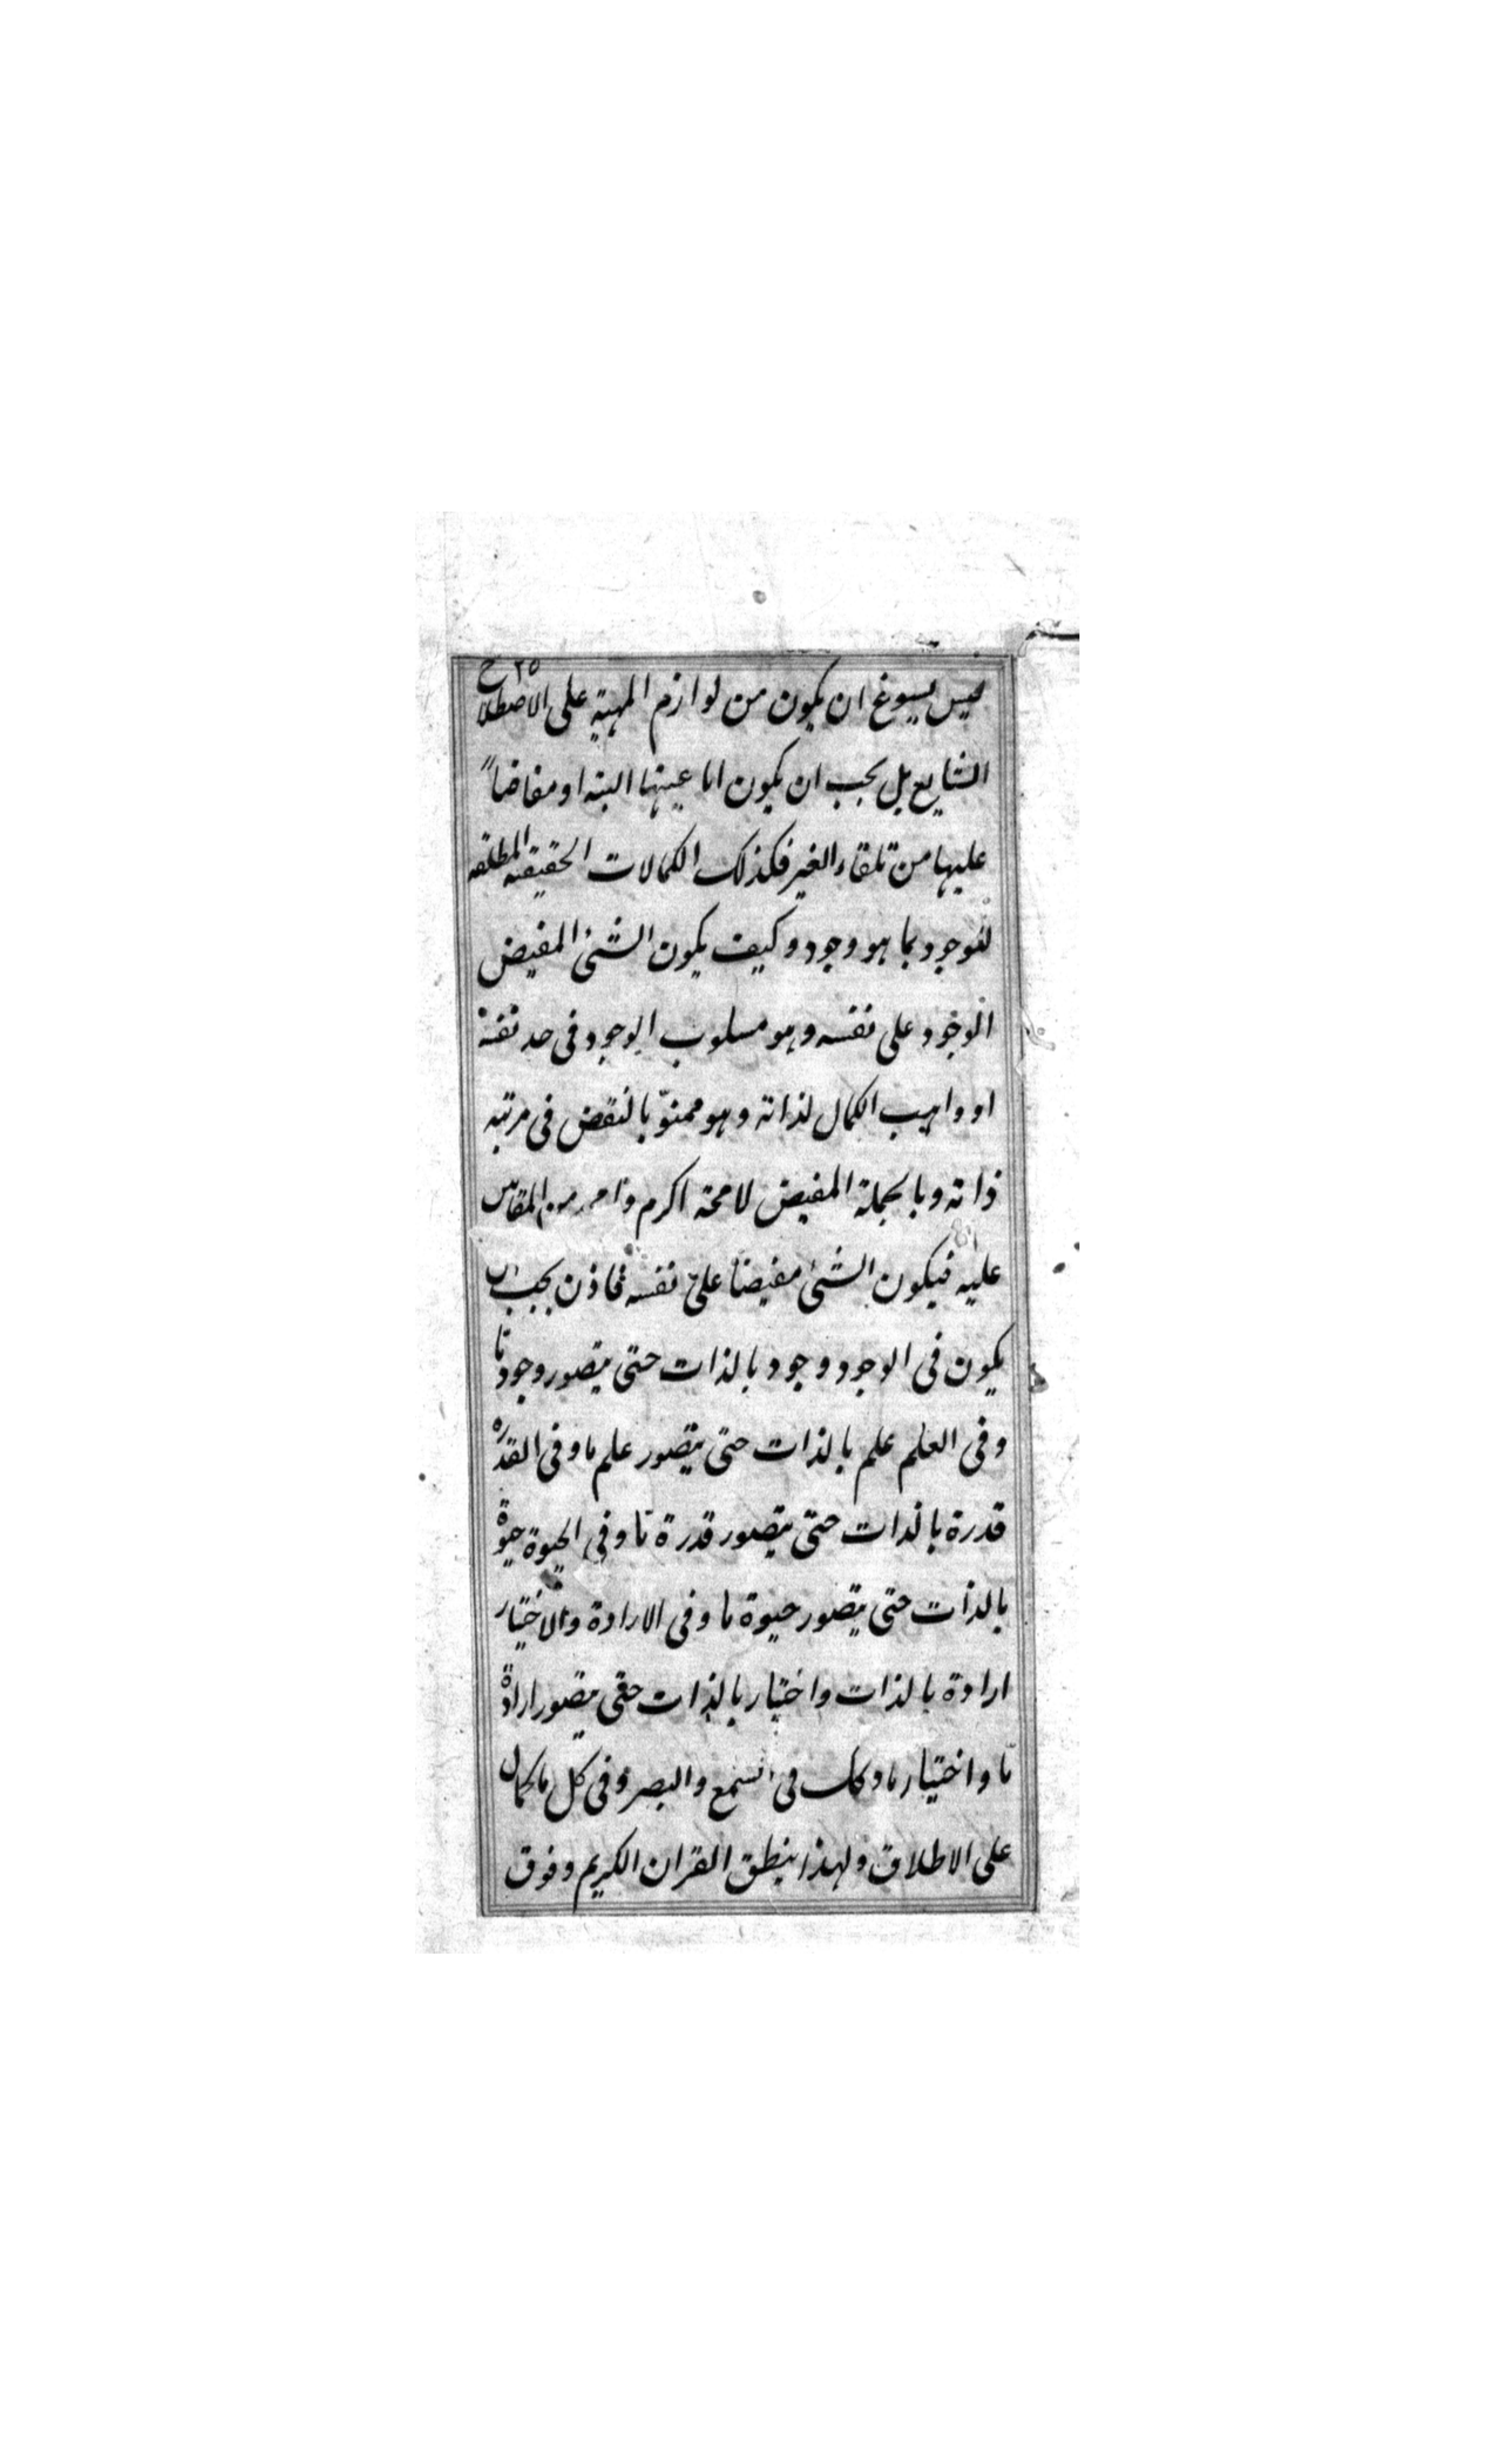 ٢٥
ليس يسوغ ان يكون من لوازم المهية على الاصطلاح
الشايع بل يجب ان يكون اما عينها البته او مفاضاً
عليها من تلقاء الغير فكذلك الكمالات الحقيقيه المطلقه
للموجود بما هو وجود وكيف يكون الشئ المفيض
الوجود على نفسه وهو مسلوب الوجود فى حد نفسه
او واهب الكمال لذاته وهو ممنوّ بالنقص فى مرتبه
ذاته وبالجملة المفيض لا محة اكرم من المفاض
عليه فيكون الشئ مفيضا على نفسه فاذن يجب ان
يكون فى الوجود وجود بالذات حتى يتصور وجود ما
وفى العلم علم بالذات حتى يتصور علم ما وفى القدره
قدرة بالذات حتى يتصور قدرة ما وفى الحيوة حيوة
بالذات حتى يتصور حيوة ما وفى الارادة والاختيار
ارادة بالذات واختيار بالذات حتى يتصور ارادة
ما واختيار ما وكك فى السمع والبصر وفى كل ما كمال
على الاطلاق ولهذا ينطق القران الكريم وفوق